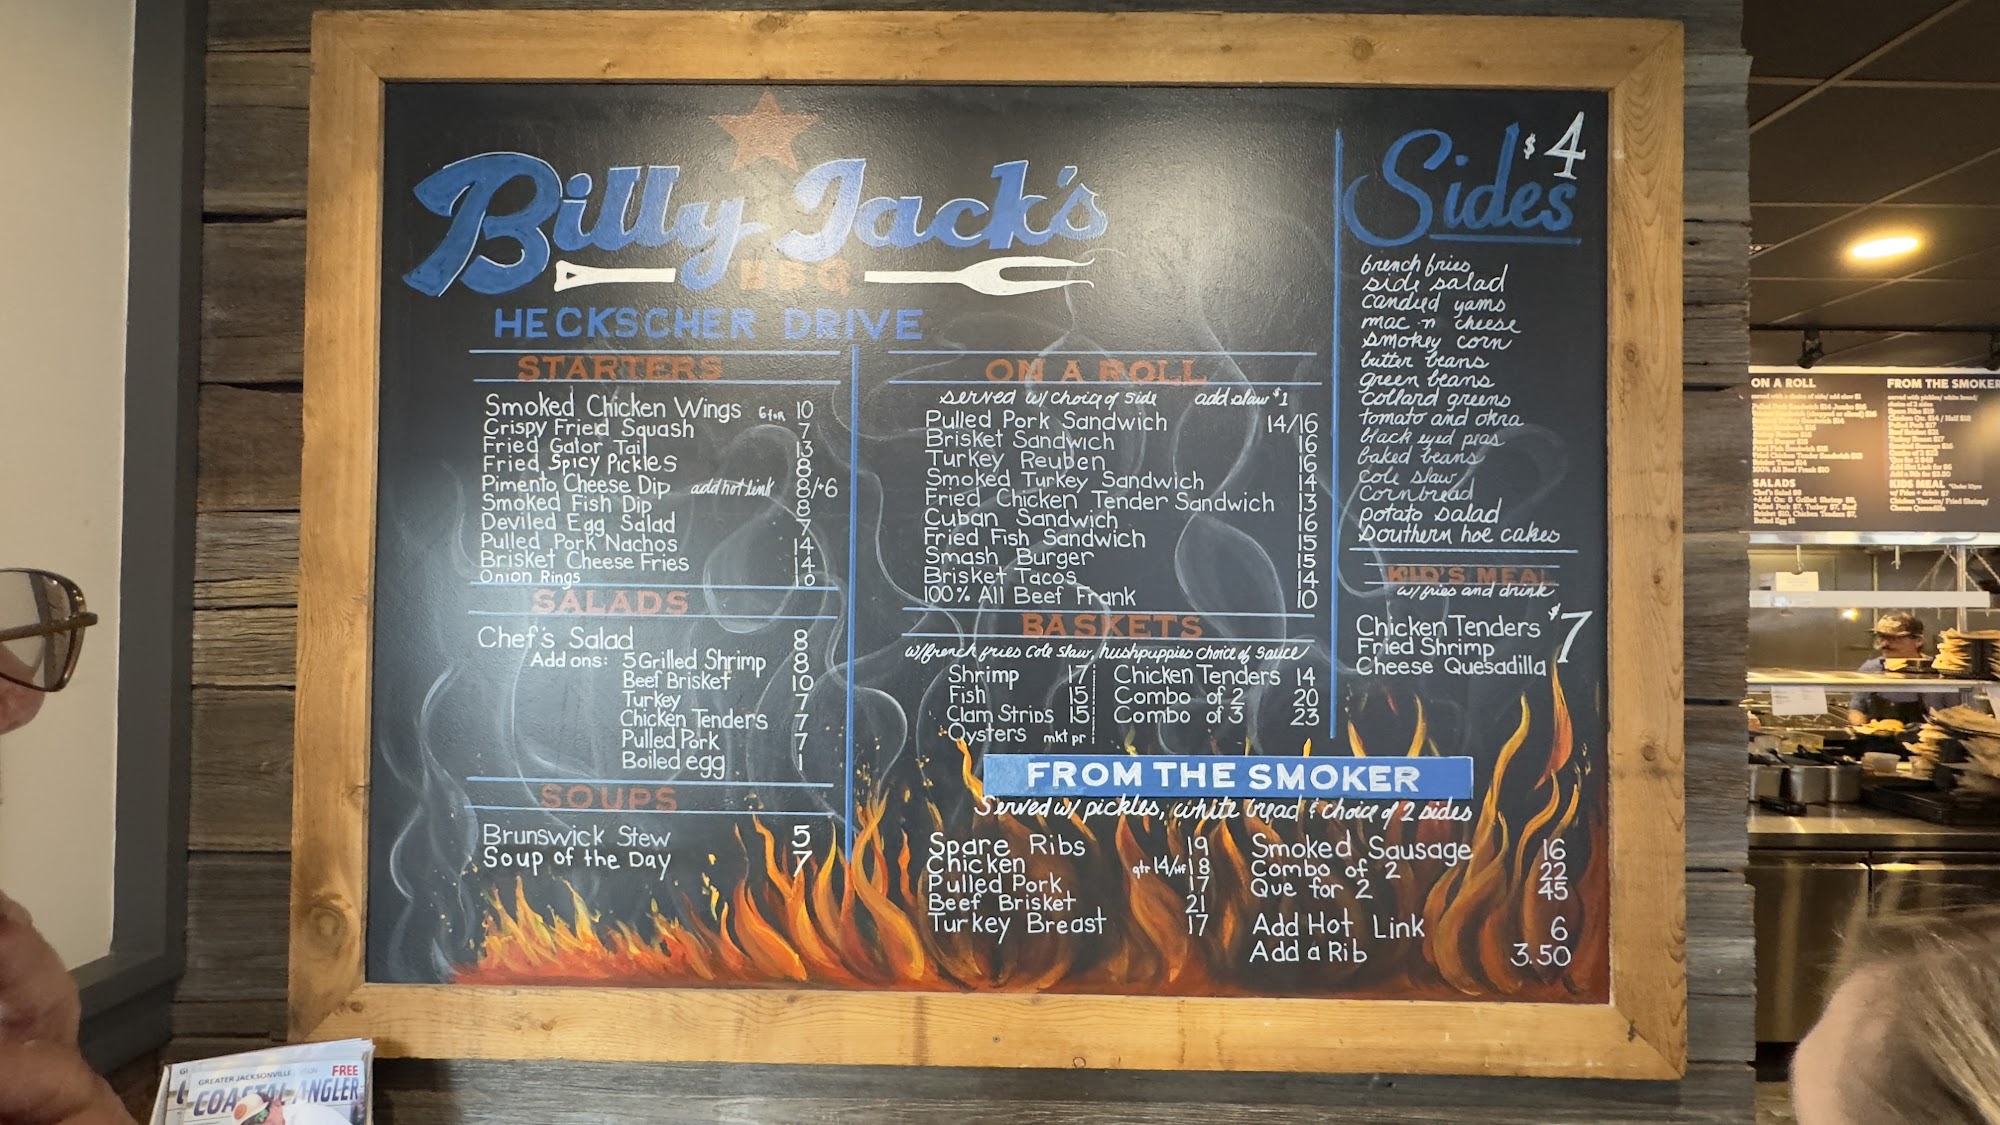 Billy Jack's
BBQ
HECKSCHER DRIVE
STARTERS
Smoked Chicken Wings 6 for 10
Crispy Fried Squash 7
Fried Gator Tail 13
Fried Spicy Pickles 8
Pimento Cheese Dip add hot link 8/+6
Smoked Fish Dip 8
Deviled Egg Salad 7
Pulled Pork Nachos 14
Brisket Cheese Fries 14
Onion Rings 10
SALADS
Chef's Salad 8
Add ons: 5 Grilled Shrimp 8
Beef Brisket 10
Turkey 7
Chicken Tenders 7
Pulled Pork 7
Boiled egg 1
SOUPS
Brunswick Stew 5
Soup of the Day 7
ON A ROLL
served w/ choice of side add slaw $1
Pulled Pork Sandwich 14/16
Brisket Sandwich 16
Turkey Reuben 16
Smoked Turkey Sandwich 14
Fried Chicken Tender Sandwich 13
Cuban Sandwich 16
Fried Fish Sandwich 15
Smash Burger 15
Brisket Tacos 14
100% All Beef Frank 10
BASKETS
w/french fries cole slaw, hushpuppies choice of sauce
Shrimp 17
Fish 15
Clam Strips 15
Oysters mkt pr
Chicken Tenders 14
Combo of 2 20
Combo of 3 23
FROM THE SMOKER
Served w/ pickles, white bread & choice of 2 sides
Spare Ribs 19
Chicken qtr 14/HF 18
Pulled Pork 17
Beef Brisket 21
Turkey Breast 17
Smoked Sausage 16
Combo of 2 22
Que for 2 45
Add Hot Link 6
Add a Rib 3.50
Sides $4
french fries
side salad
candied yams
mac n cheese
smokey corn
butter beans
green beans
collard greens
tomato and okra
black eyed peas
baked beans
cole slaw
cornbread
potato salad
southern hoe cakes
KID'S MEAL
w/ fries and drink
$7
Chicken Tenders
Fried Shrimp
Cheese Quesadilla
ON A ROLL
100% All Beef Frank $10
SALADS
Chef's Salad $8
FROM THE SMOKER
KIDS MEAL
w/ Fries + drink $7
Chicken Tenders/ Fried Shrimp/
Cheese Quesadilla
GREATER JACKSONVILLE
FREE
COASTAL ANGLER